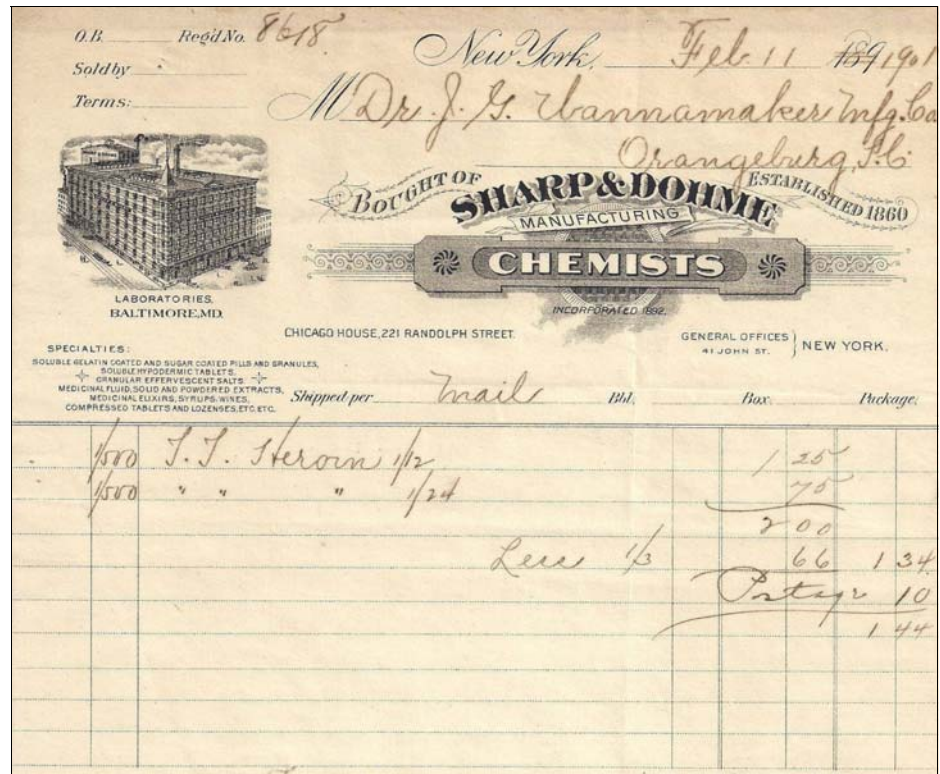 O.B. Reg'd No. 8618
Sold by
Terms:
New York, Feb 11 189 1901
M Dr. J. G. Wannamaker Mfg. Co
Orangeburg, S.C.
BOUGHT OF SHARP & DOHME ESTABLISHED 1860
MANUFACTURING
CHEMISTS
INCORPORATED 1892.
LABORATORIES,
BALTIMORE, MD.
CHICAGO HOUSE, 221 RANDOLPH STREET.
GENERAL OFFICES
41 JOHN ST. } NEW YORK.
SPECIALTIES:
SOLUBLE GELATIN COATED AND SUGAR COATED PILLS AND GRANULES,
SOLUBLE HYPODERMIC TABLETS,
GRANULAR EFFERVESCENT SALTS
MEDICINAL FLUID, SOLID AND POWDERED EXTRACTS,
MEDICINAL ELIXIRS, SYRUPS, WINES,
COMPRESSED TABLETS AND LOZENGES, ETC. ETC.
Shipped per Mail Bbl. Box. Package.
1/500 T. T. Heroin 1/12 1 25
1/500 " " " 1/24 75
2 00
Less 1/3 66 1 34
Postage 10
1 44